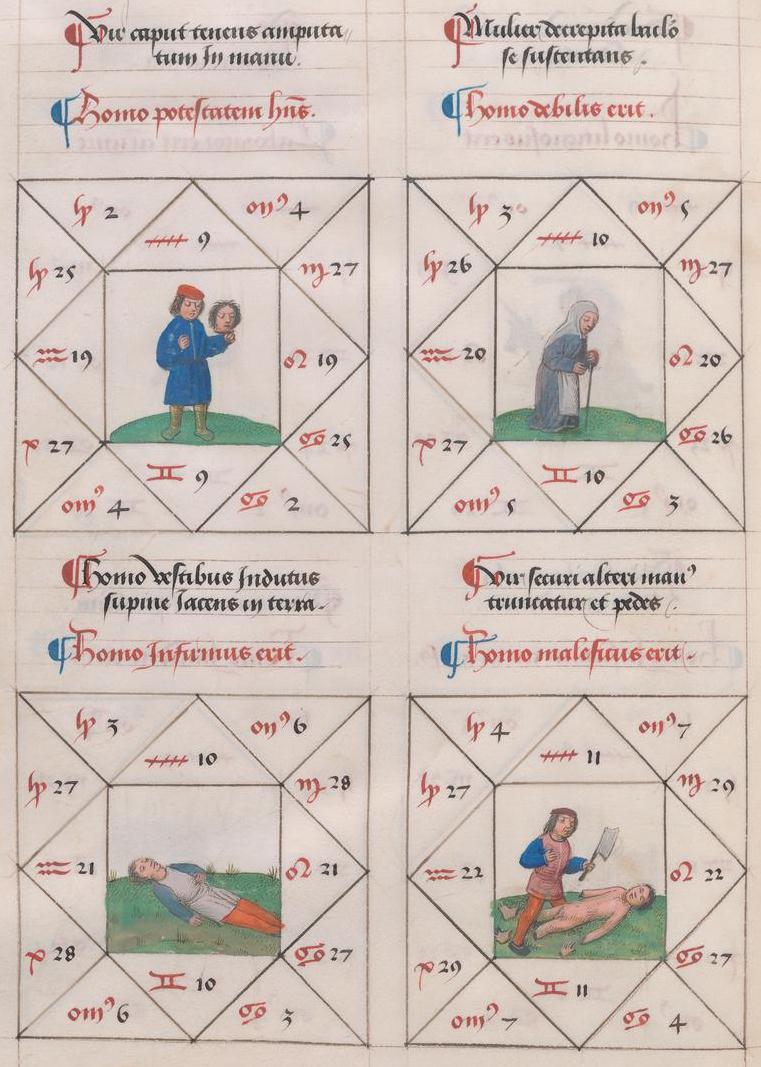 ¶Vir caput tenens amputa
tum In manu.
¶Homo potestatem hn̄s.
¶Mulier decrepita baculō
se sustentans.
¶Homo debilis erit.
♑ 2
omꝰ 4
9
♑ 25
♍ 27
♒ 19
♌ 19
♈ 27
♋ 25
♊ 9
omꝰ 4
♋ 2
♑ 3
omꝰ 5
10
♑ 26
♍ 27
♒ 20
♌ 20
♈ 27
♋ 26
♊ 10
omꝰ 5
♋ 3
¶Homo vestibus Indutus
supine Iacens in terra.
¶Homo Infirmus erit.
¶Vir securi alteri manꝰ
truncatur et pedes.
¶Homo maleficus erit.
♑ 3
omꝰ 6
10
♑ 27
♍ 28
♒ 21
♌ 21
♈ 28
♋ 27
♊ 10
omꝰ 6
♋ 3
♑ 4
omꝰ 7
11
♑ 27
♍ 29
♒ 22
♌ 22
♈ 29
♋ 27
♊ 11
omꝰ 7
♋ 4